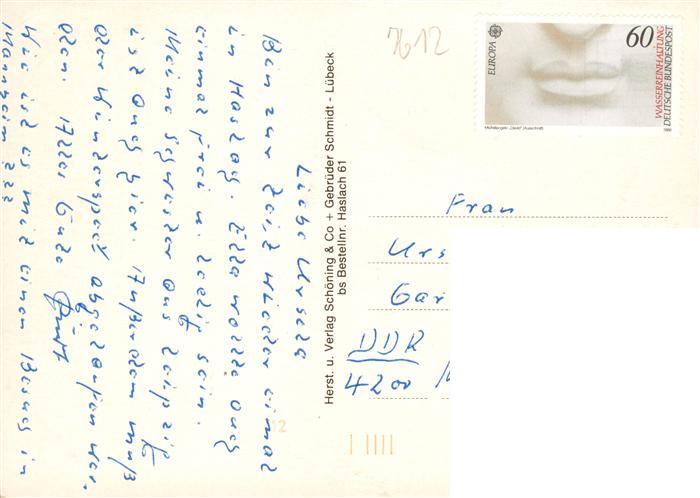 Liebe Ursela
Bin zur Zeit wieder einmal
in Haslay. Ella wollte auch
einmal frei u. ledig sein.
Meine Schwester aus Leipzig
ist auch hier. Außerdem muß
der Wintersport abgelaufen wer-
den. Alles Gute
Wie ist es mit einen Besuch in
Mannheim ???
Herst. u. Verlag Schöning & Co + Gebrüder Schmidt - Lübeck
bs Bestellnr. Haslach 61
7612
EUROPA
60
WASSERREINHALTUNG
DEUTSCHE BUNDESPOST
Michelangelo „David“ (Ausschnitt)
1986
Frau
Urs
Gar
DDR
4200